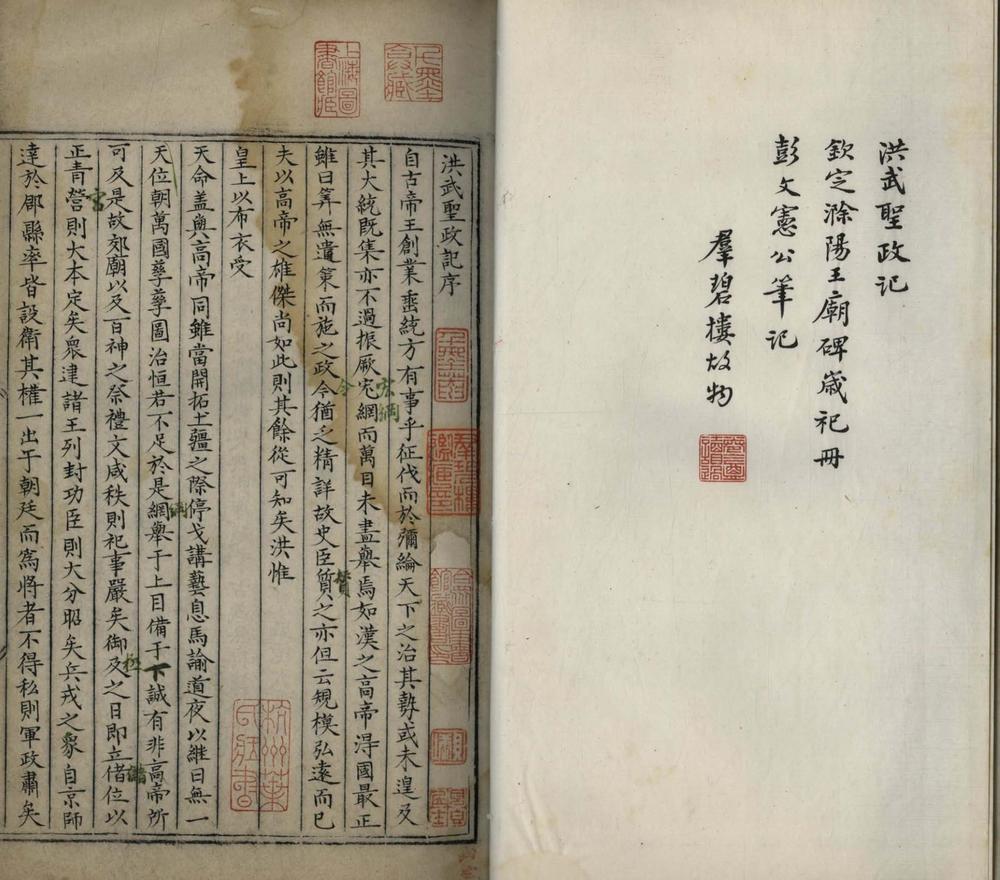 洪武聖政记
欽定滁陽王廟碑嵗祀冊
彭文憲公筆记
羣碧樓故物
上海圖書館藏
洪武聖政記序
自古帝王創業垂統方有事乎征伐而於彌綸天下之治其勢或未遑及
其大統既集亦不過振厥宏網而萬目未盡舉焉如漢之高帝淂國最正
雖曰筭無遺策而施之政令猶乏精詳故史臣質之亦但云規模弘遠而已
夫以高帝之雄傑尚如此則其餘從可知矣洪惟
皇上以布衣受
天命盖與高帝同雖當開拓土疆之際停戈講藝息馬論道夜以継日無一
天位朝萬國孳孳圖治恒若不足於是網舉于上目備于下誠有非高帝所
可及是故郊廟以及百神之祭禮文咸秩則祀事嚴矣御及之日即立偖位以
正青營則大本定矣衆建諸王列封功臣則大分昭矣兵戎之衆自京師
達於郡縣率皆設衛其權一出于朝廷而爲將者不得私則軍政肅矣
宏綱
令
贊
綱
極
儲
宮
杭州葉氏藏書